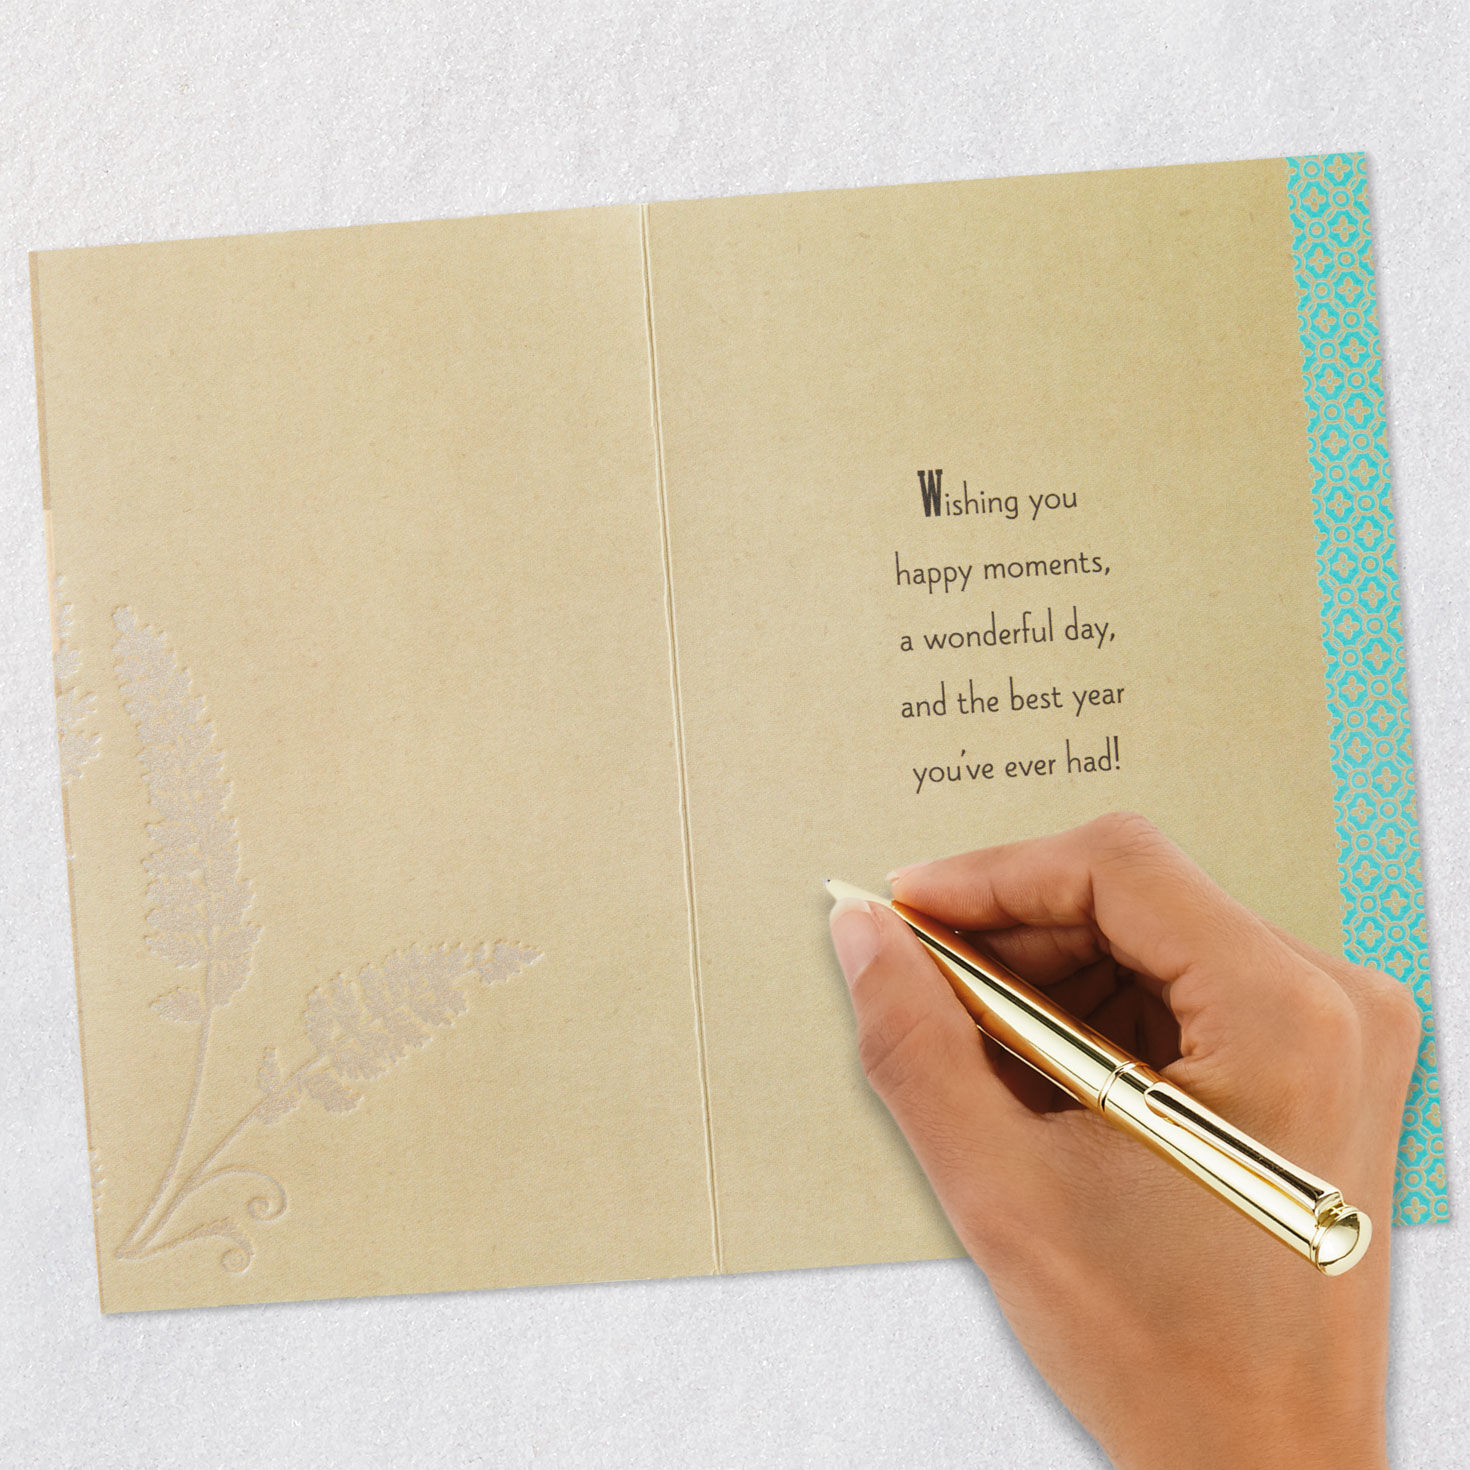 Wishing you
happy moments,
a wonderful day,
and the best year
you've ever had!